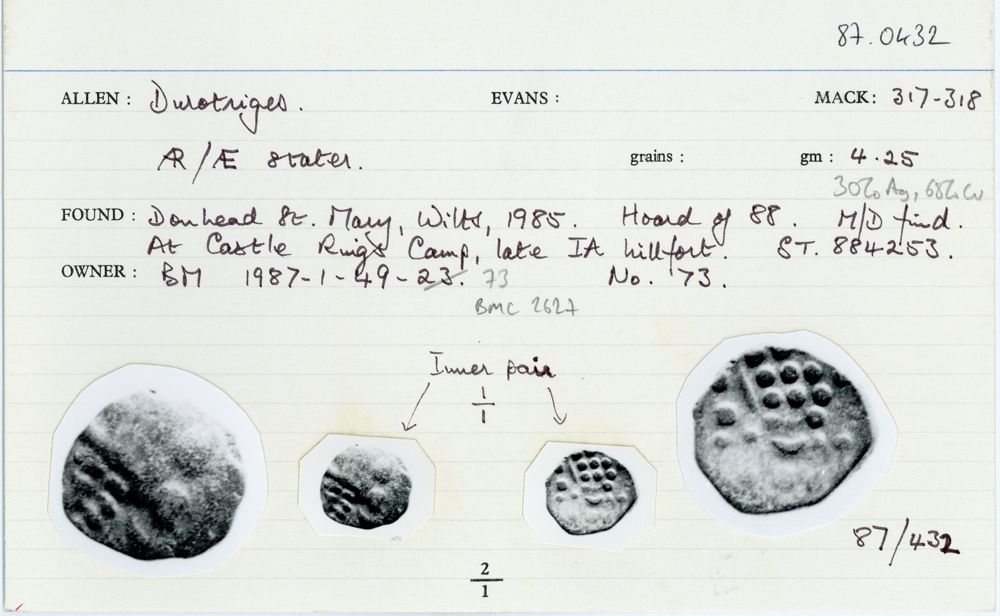 87.0432
ALLEN : Durotriges. EVANS : MACK: 317-318
AR/Æ stater. grains : gm : 4.25
30% Ag, 68% Cu
FOUND : Donhead St. Mary, Wilts, 1985. Hoard of 88. M/D find.
At Castle Rings Camp, late IA hillfort. ST. 884253.
OWNER : BM 1987-1-49-23. 73 No. 73.
BMC 2627
Inner pair
1/1
87/432
2/1